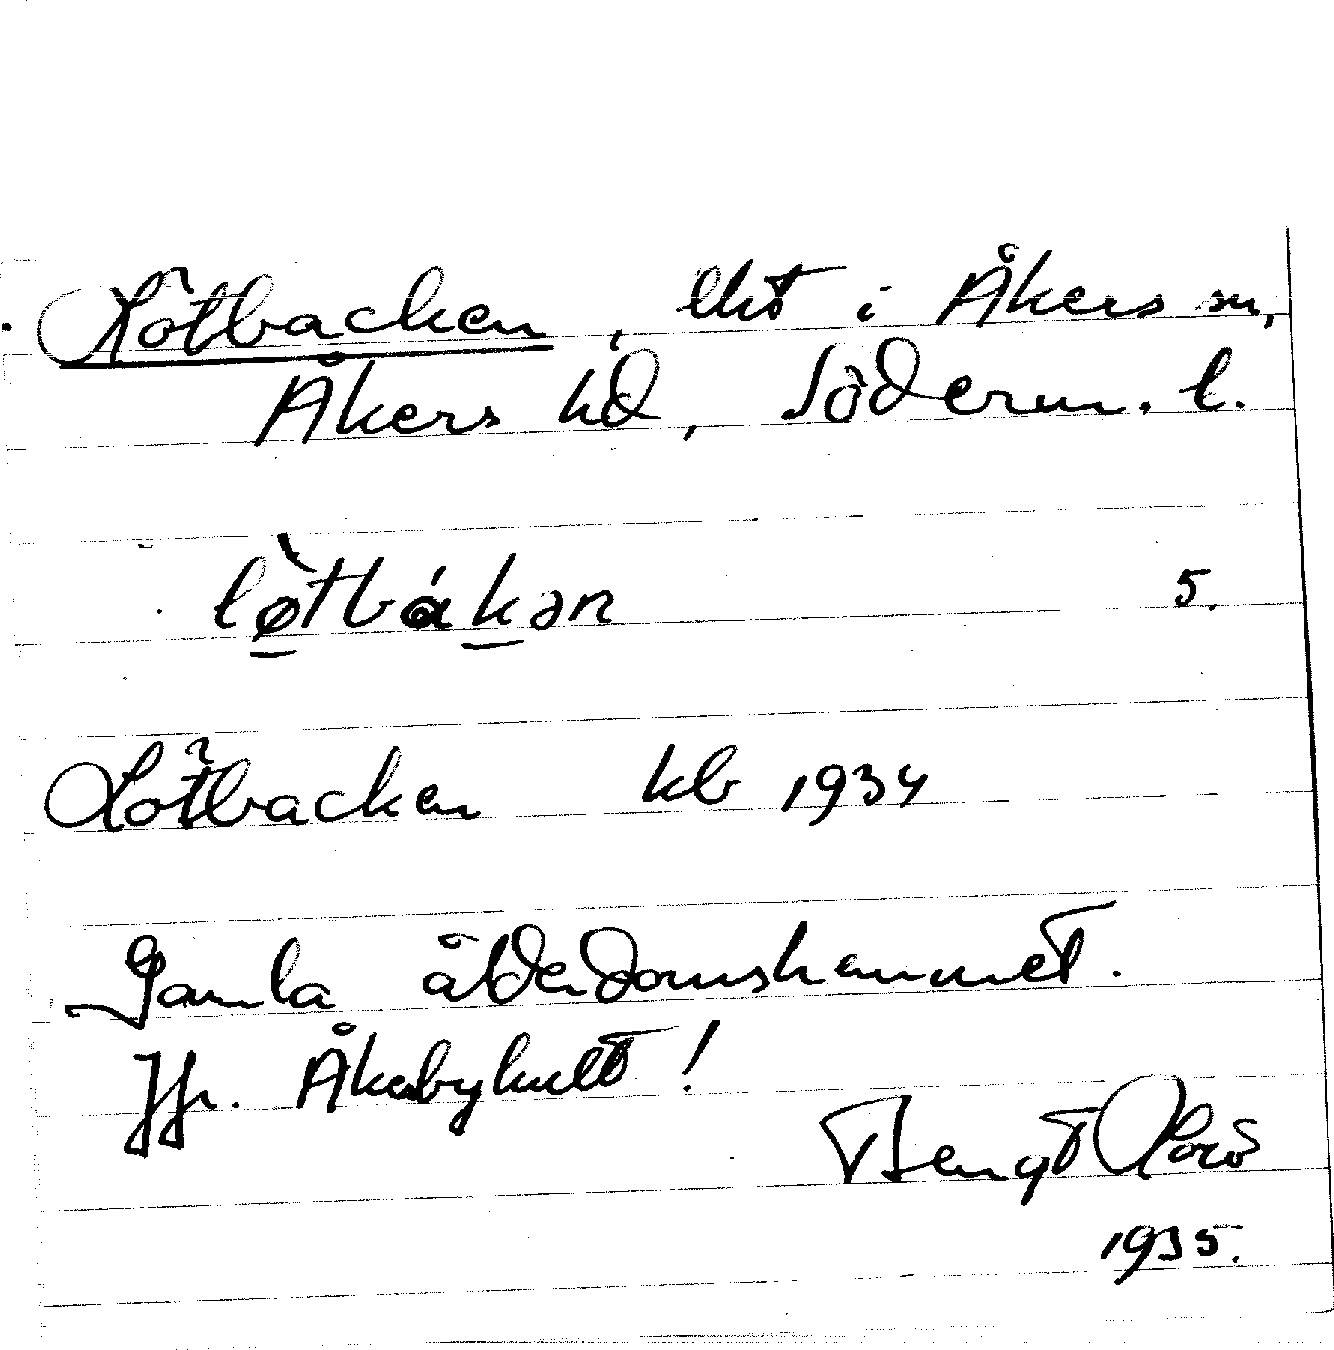 Lötbacken, lht i Åkers sn,
Åkers hd, Söderm. l.
lø̀tbákan 5.
Lötbacken kb 1934
Gamla ålderdomshemmet.
Jfr. Åkerbyhult!
Bengt
1935.